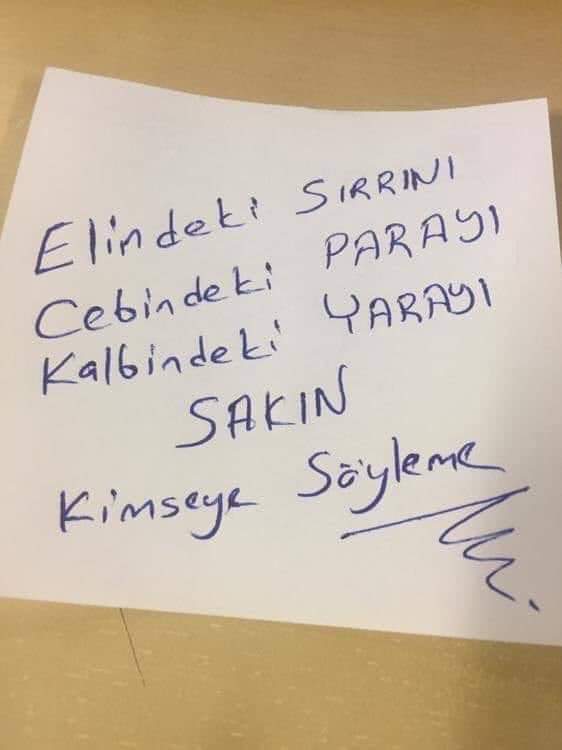 Elindeki SIRRINI
Cebindeki PARAYI
Kalbindeki YARAYI
SAKIN
Kimseye Söyleme